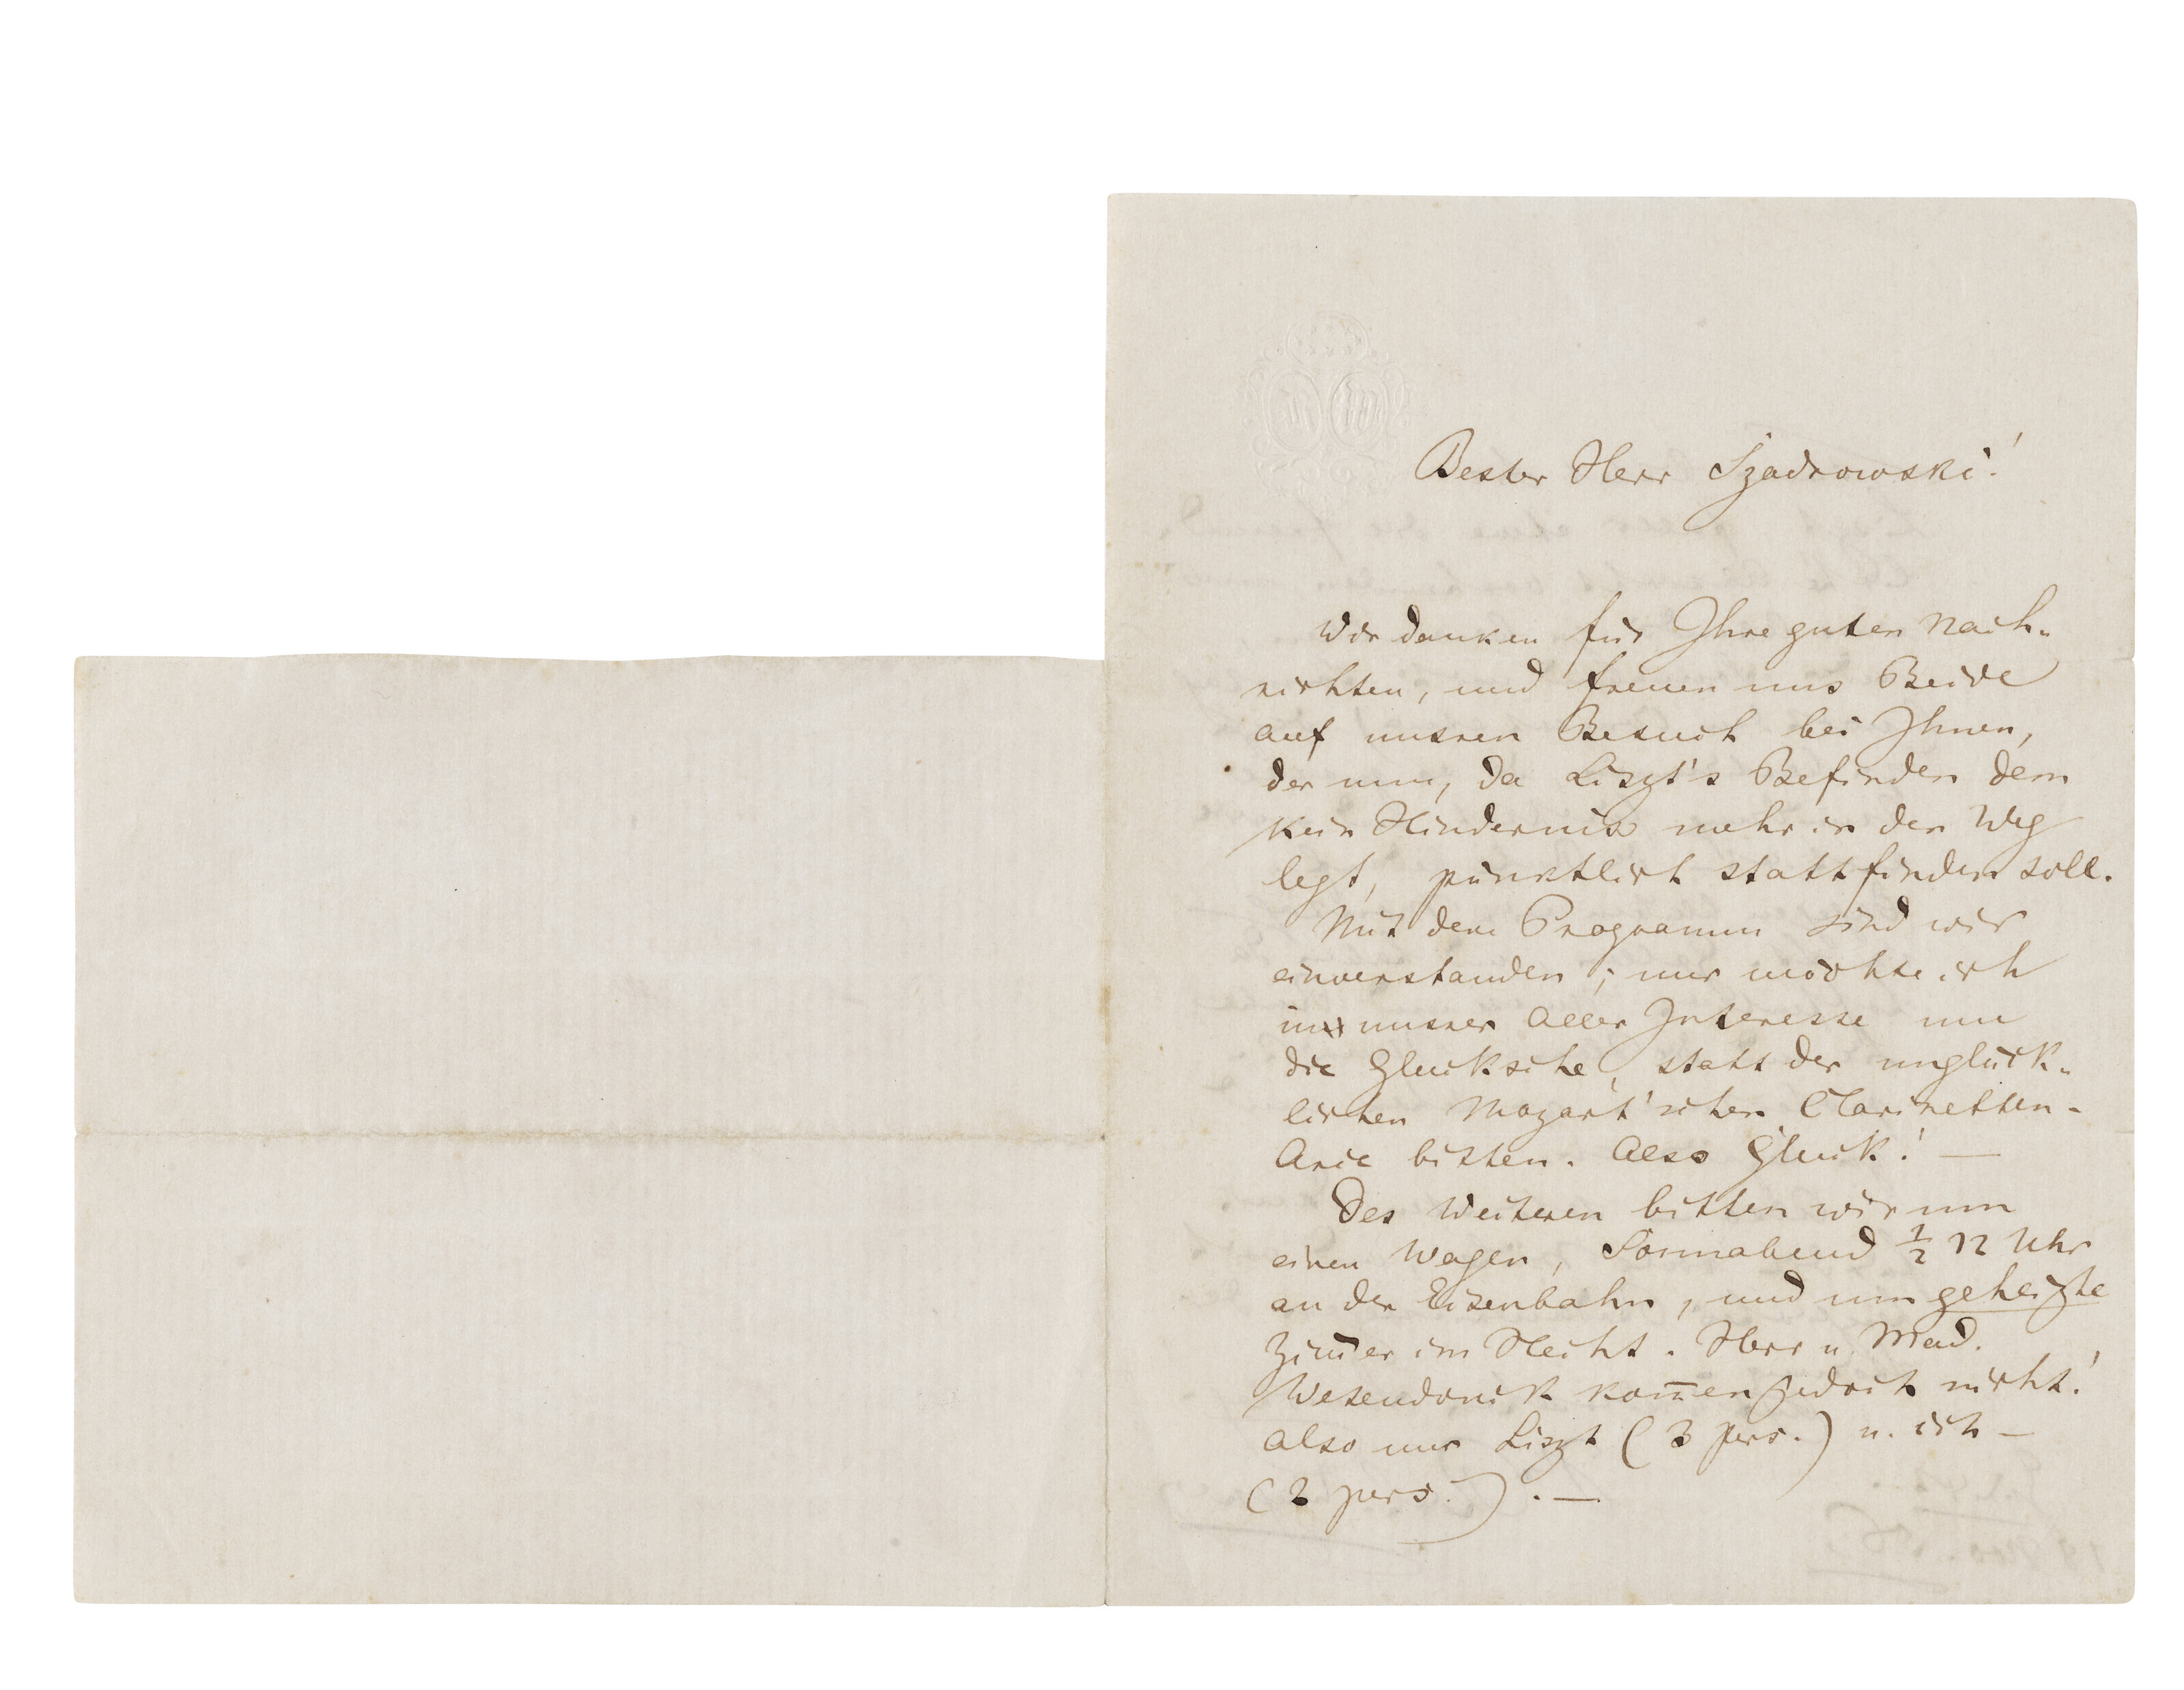 Bester Herr Szadrowski!
Wir danken für Ihre guten Nach-
richten, und freuen uns Beide
auf unsren Besuch bei Ihnen,
der nun, da Liszt's Befinden dem
kein Hinderniss mehr in den Weg
legt, pünktlich stattfinden soll.
Mit dem Programm sind wir
einverstanden; nur möchte ich
in unsrer Aller Interesse um
die Glucksche, statt der unglück-
lichen Mozart'schen Clarinetten-
Arie bitten. Also Gluck! —
Des Weiteren bitten wir um
einen Wagen, Sonnabend ½ 12 Uhr
an der Eisenbahn, und um geheizte
Zim̅er im Hecht. Herr u. Mad.
Wesendonck kom̅en jedoch nicht!
Also nur Liszt (3 pers.) u. ich —
(2 pers.). —